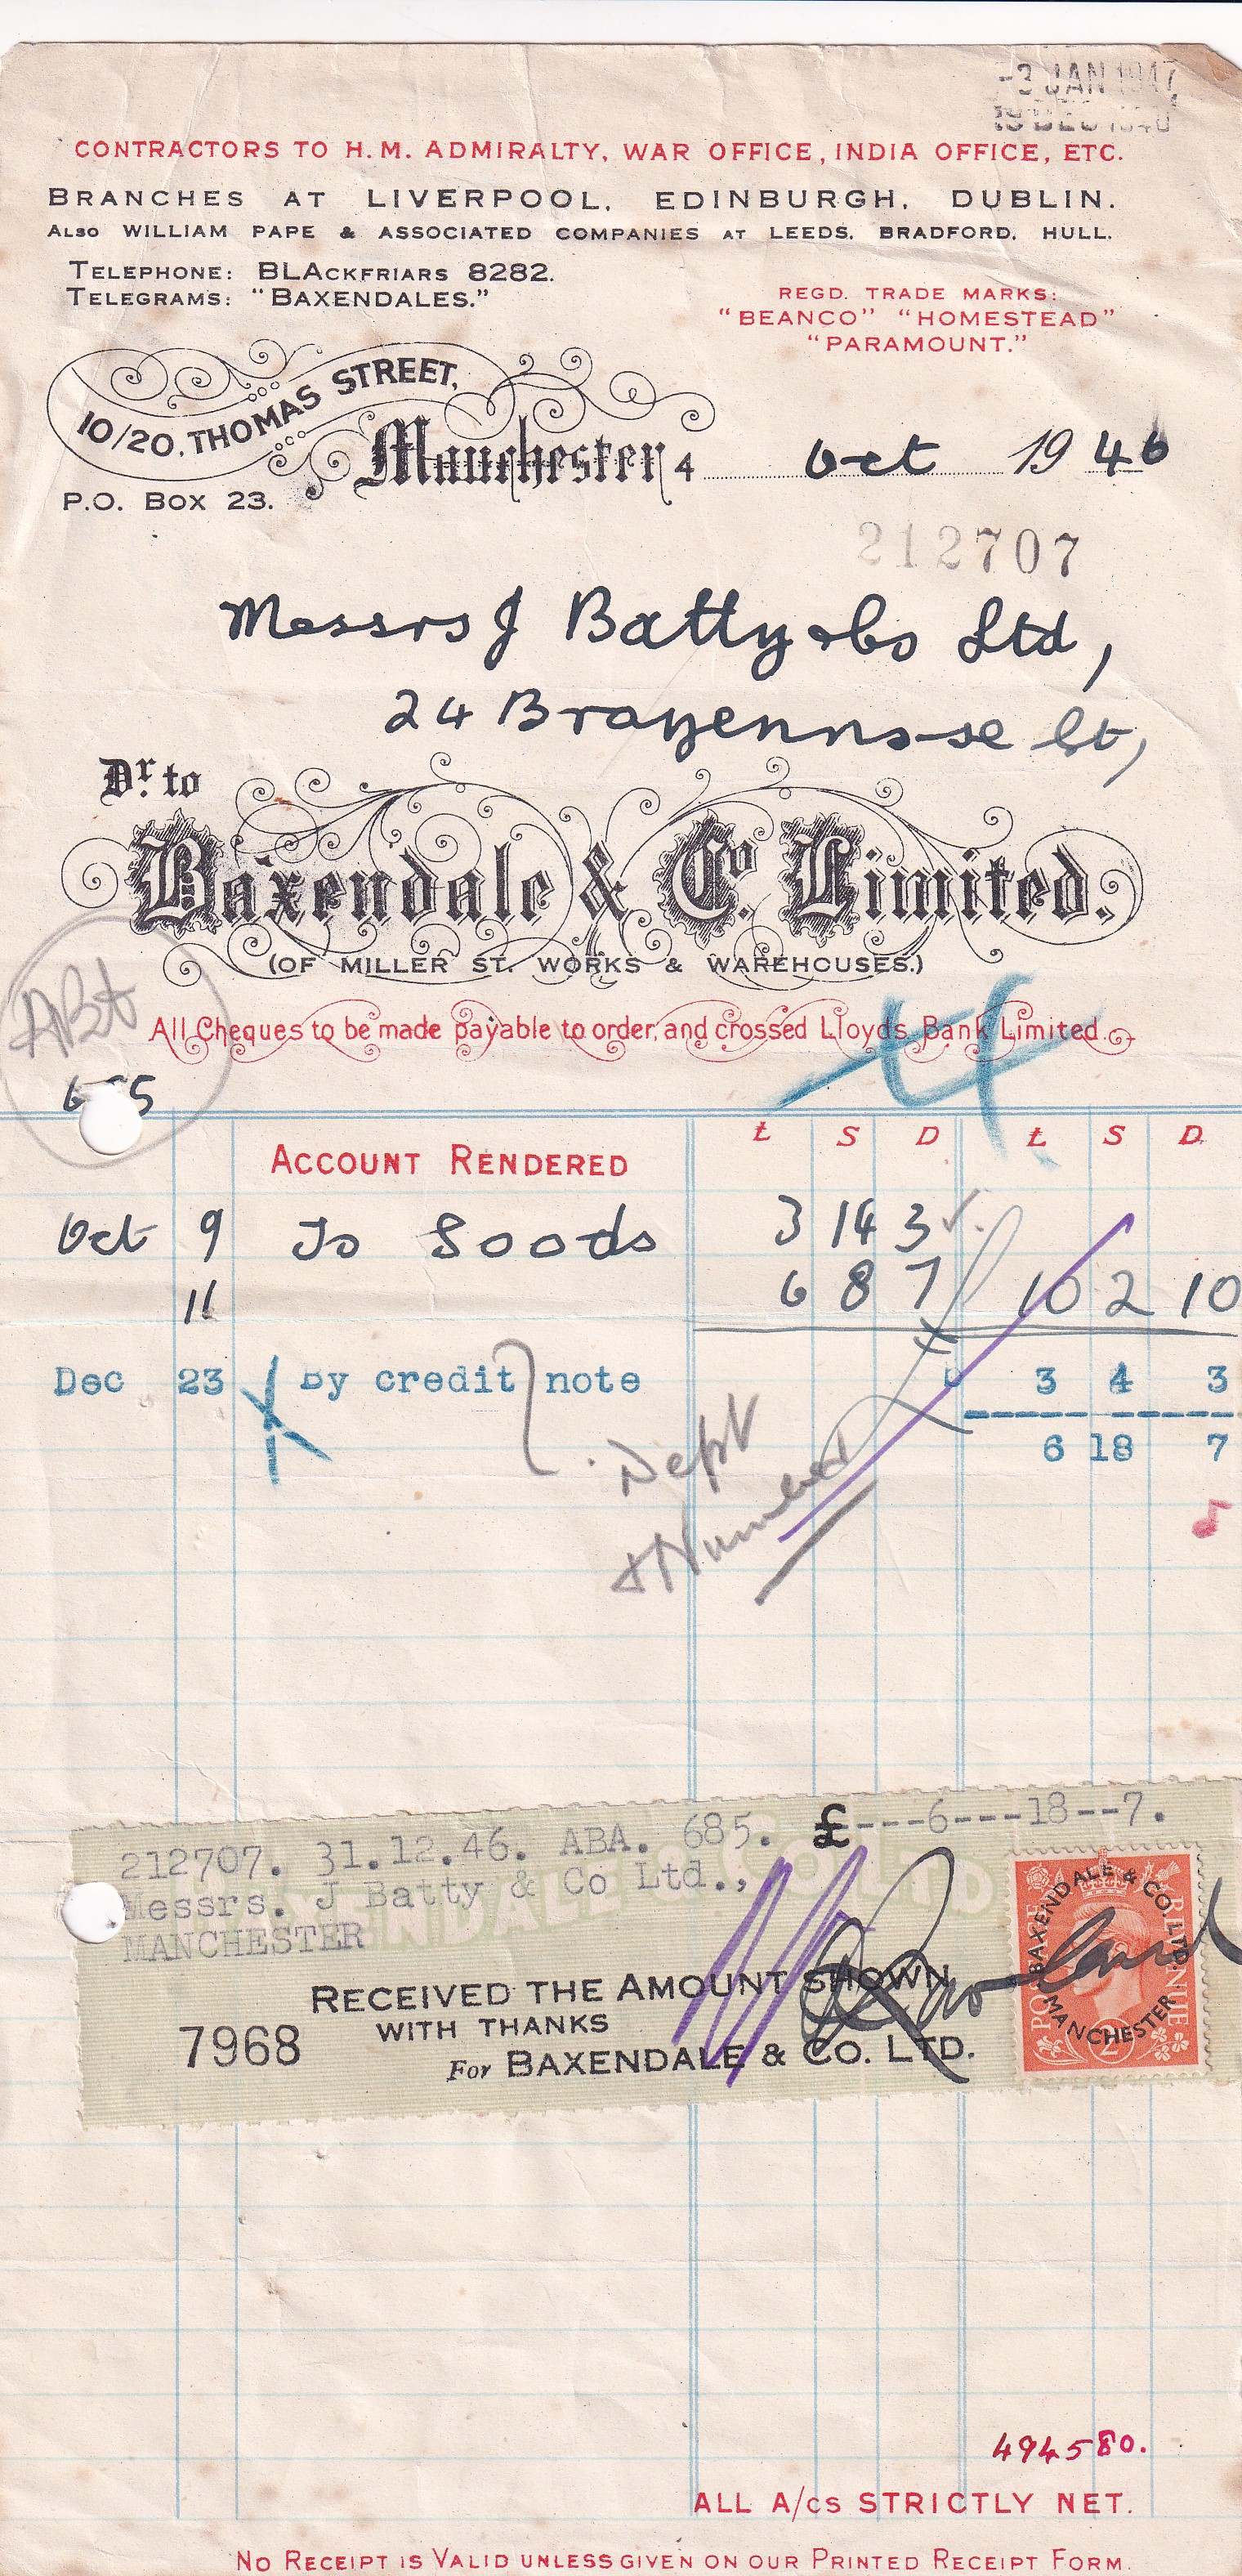 -3 JAN 1947
19 DEC 1946
CONTRACTORS TO H.M. ADMIRALTY, WAR OFFICE, INDIA OFFICE, ETC.
BRANCHES AT LIVERPOOL, EDINBURGH, DUBLIN.
ALSO WILLIAM PAPE & ASSOCIATED COMPANIES AT LEEDS, BRADFORD, HULL.
TELEPHONE: BLACKFRIARS 8282.
TELEGRAMS: "BAXENDALES."
REGD. TRADE MARKS:
"BEANCO" "HOMESTEAD"
"PARAMOUNT."
10/20, THOMAS STREET,
Manchester 4 Oct 1946
P.O. BOX 23.
212707
Messrs J Batty & Co Ltd,
24 Brazennose St,
Dr. to
Baxendale & Co. Limited.
(OF MILLER ST. WORKS & WAREHOUSES.)
All Cheques to be made payable to order, and crossed Lloyds Bank Limited.
£ S D £ S D
ACCOUNT RENDERED
Oct 9 To Goods 3 14 3
11 6 8 7 10 2 10
Dec 23 By credit note 3 4 3
6 18 7
Dept
212707. 31.12.46. ABA. 685. £---6---18--7.
Messrs. J Batty & Co Ltd.,
MANCHESTER
RECEIVED THE AMOUNT SHOWN
WITH THANKS
7968
For BAXENDALE & CO. LTD.
BAXENDALE & CO. LTD.
MANCHESTER
POSTAGE REVENUE
2D
494580.
ALL A/CS STRICTLY NET.
NO RECEIPT IS VALID UNLESS GIVEN ON OUR PRINTED RECEIPT FORM.